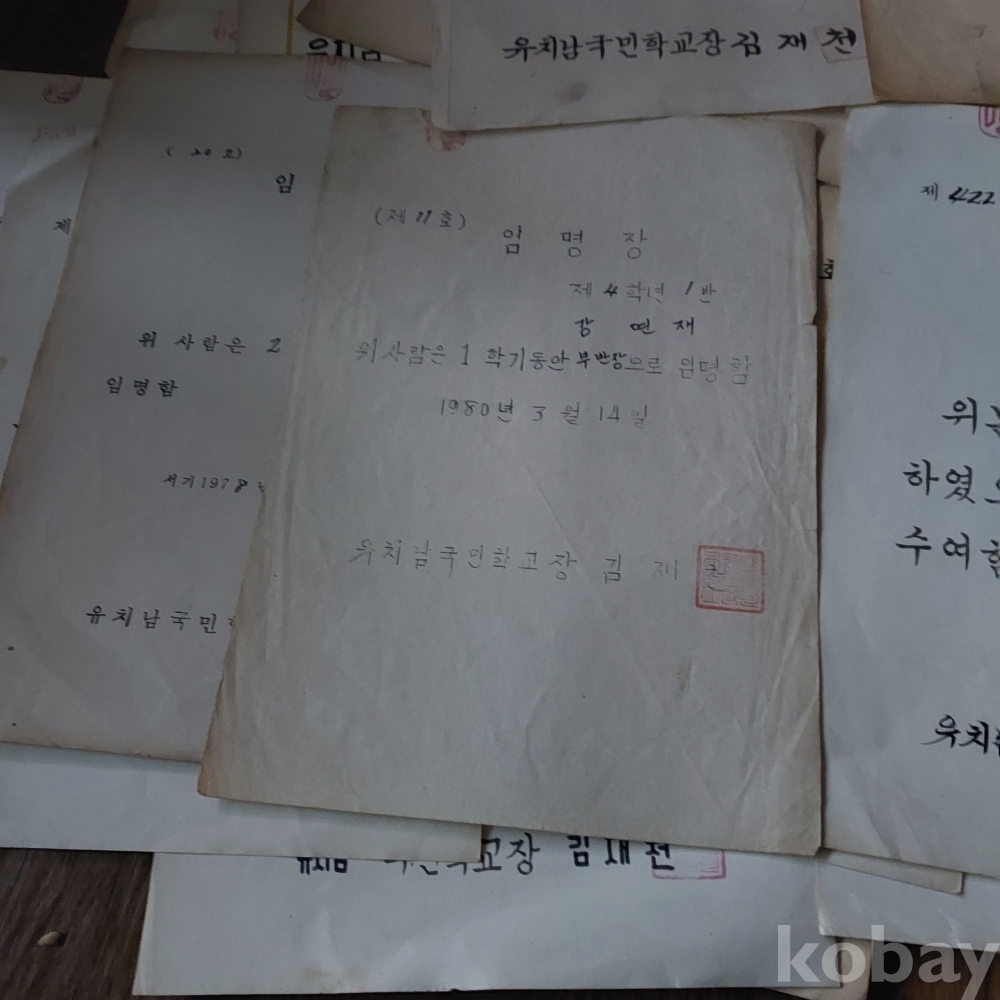 유치남국민학교장 김 재 천
유치남
( 20 호)
임
제
위 사람은 2
임명함
서기 1978
유치남국민학
(제 11호)
임 명 장
제 4 학년 1 반
강 연 재
위 사람은 1 학기동안 부반장으로 임명함
1980년 3 월 14일
유치남국민학교장 김 재 천
제 422
호
위는
하였으
수여함
유치남
유치남 국민학교장 김재천
kobay